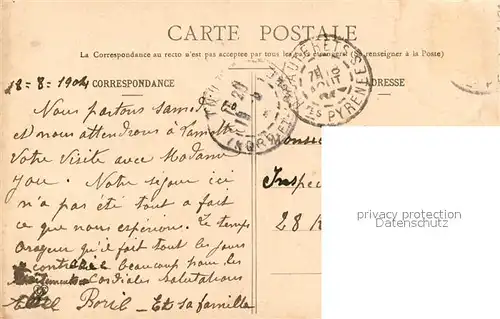 CARTE POSTALE
La Correspondance au recto n'est pas acceptée par tous les pays étrangers (Se renseigner à la Poste)
18-8-1904 CORRESPONDANCE
ADRESSE
HTES PYRENEES
Nous partons samedi 20
et nous attendrons à
votre visite avec Madame
Notre séjour ici
n'a pas été tout a fait
ce que nous espérions. Le temps
orageux qu'il fait tout les jours
beaucoup pour les
Cordiales Salutations
Et sa famille
Monsie
Inspec
28 R
privacy protection
Datenschutz